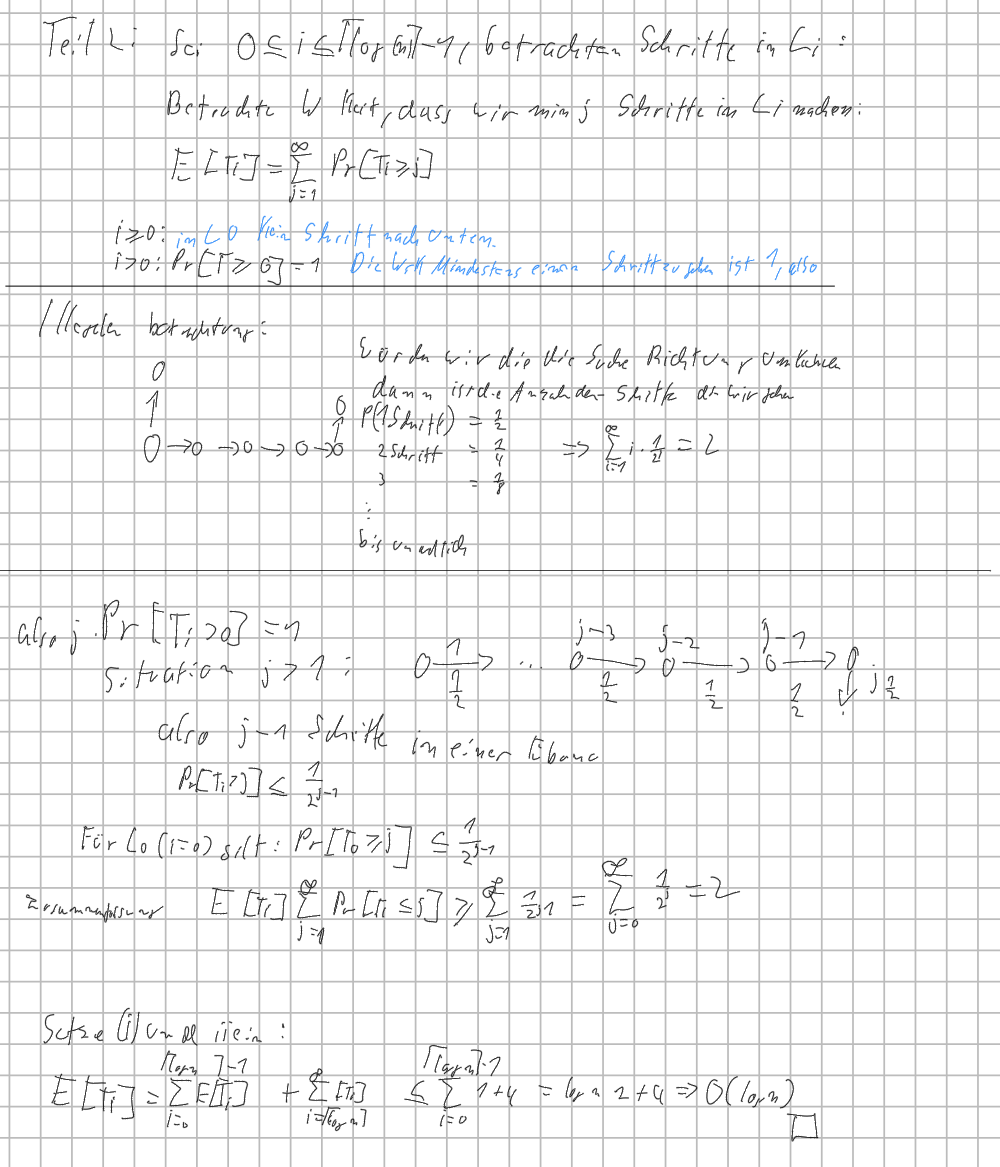 Teil Li Sei 0 ≤ i ≤ ⌈log(n)⌉-1, betrachten Schritte in Li :
Betrachte W Keit, dass wir min j Schritte in Li machen:
E[Ti] = ∑_{j=1}^{∞} Pr[Ti ≥ j]
i ≥ 0: in L0 kein Schritt nach unten.
i > 0: Pr[T ≥ 0] = 1 Die Wrk Mindestens einen Schritt zu gehen ist 1, also
betrachtung:
0
↑ 0
0 → 0 → 0 → 0 → 0 ↑
Würden wir die die Suche Richtung umkehren
dann ist die Anzahl der Schitte die wir gehen
P(1 Schritt) = 1/2
2 Schritt = 1/4 => ∑_{i=1}^{∞} i · 1/2^i = 2
3 = 1/8
⋮
bis unendlich
also j. Pr[Ti > 0] = 1
Situation j > 1 : 0 —1→ 1/2 ... j-3 0 → 1/2 j-2 0 → 1/2 j-1 0 → 1/2 0 ↓ j 1/2
also j-1 Schritte in einer Ebene
Pr[Ti ≥ j] ≤ 1/2^{j-1}
Für L0 (i=0) gilt: Pr[T0 ≥ j] ≤ 1/2^{j-1}
Zusammenfassung E[Ti] ∑_{j=1}^{∞} Pr[Ti ≤ j] ≥ ∑_{j=1}^{∞} 1/2^{j-1} = ∑_{j=0}^{∞} 1/2^j = 2
Setze (i) und ii ein :
E[Ti] = ∑_{i=0}^{⌈log n⌉-1} E[Ti] + ∑_{i=⌈log n⌉}^{∞} [Ti] ≤ ∑_{i=0}^{⌈log n⌉-1} 1+4 = log n 2+4 => O(log n)
□